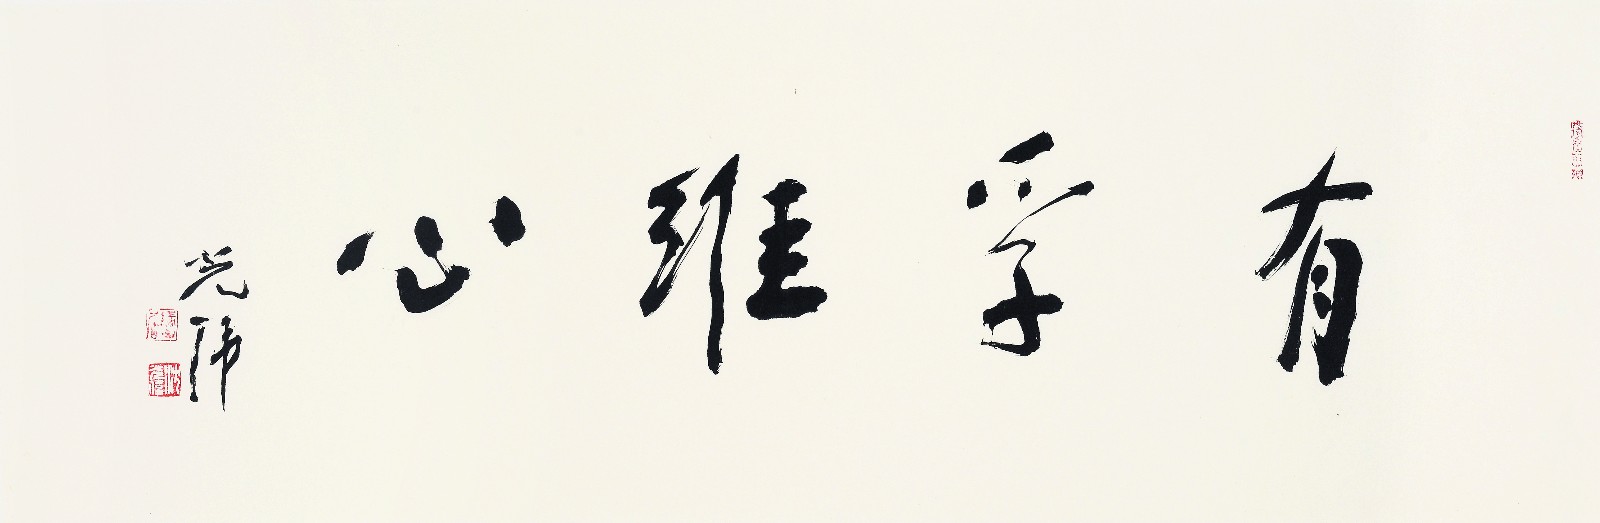 有孚維心
光師